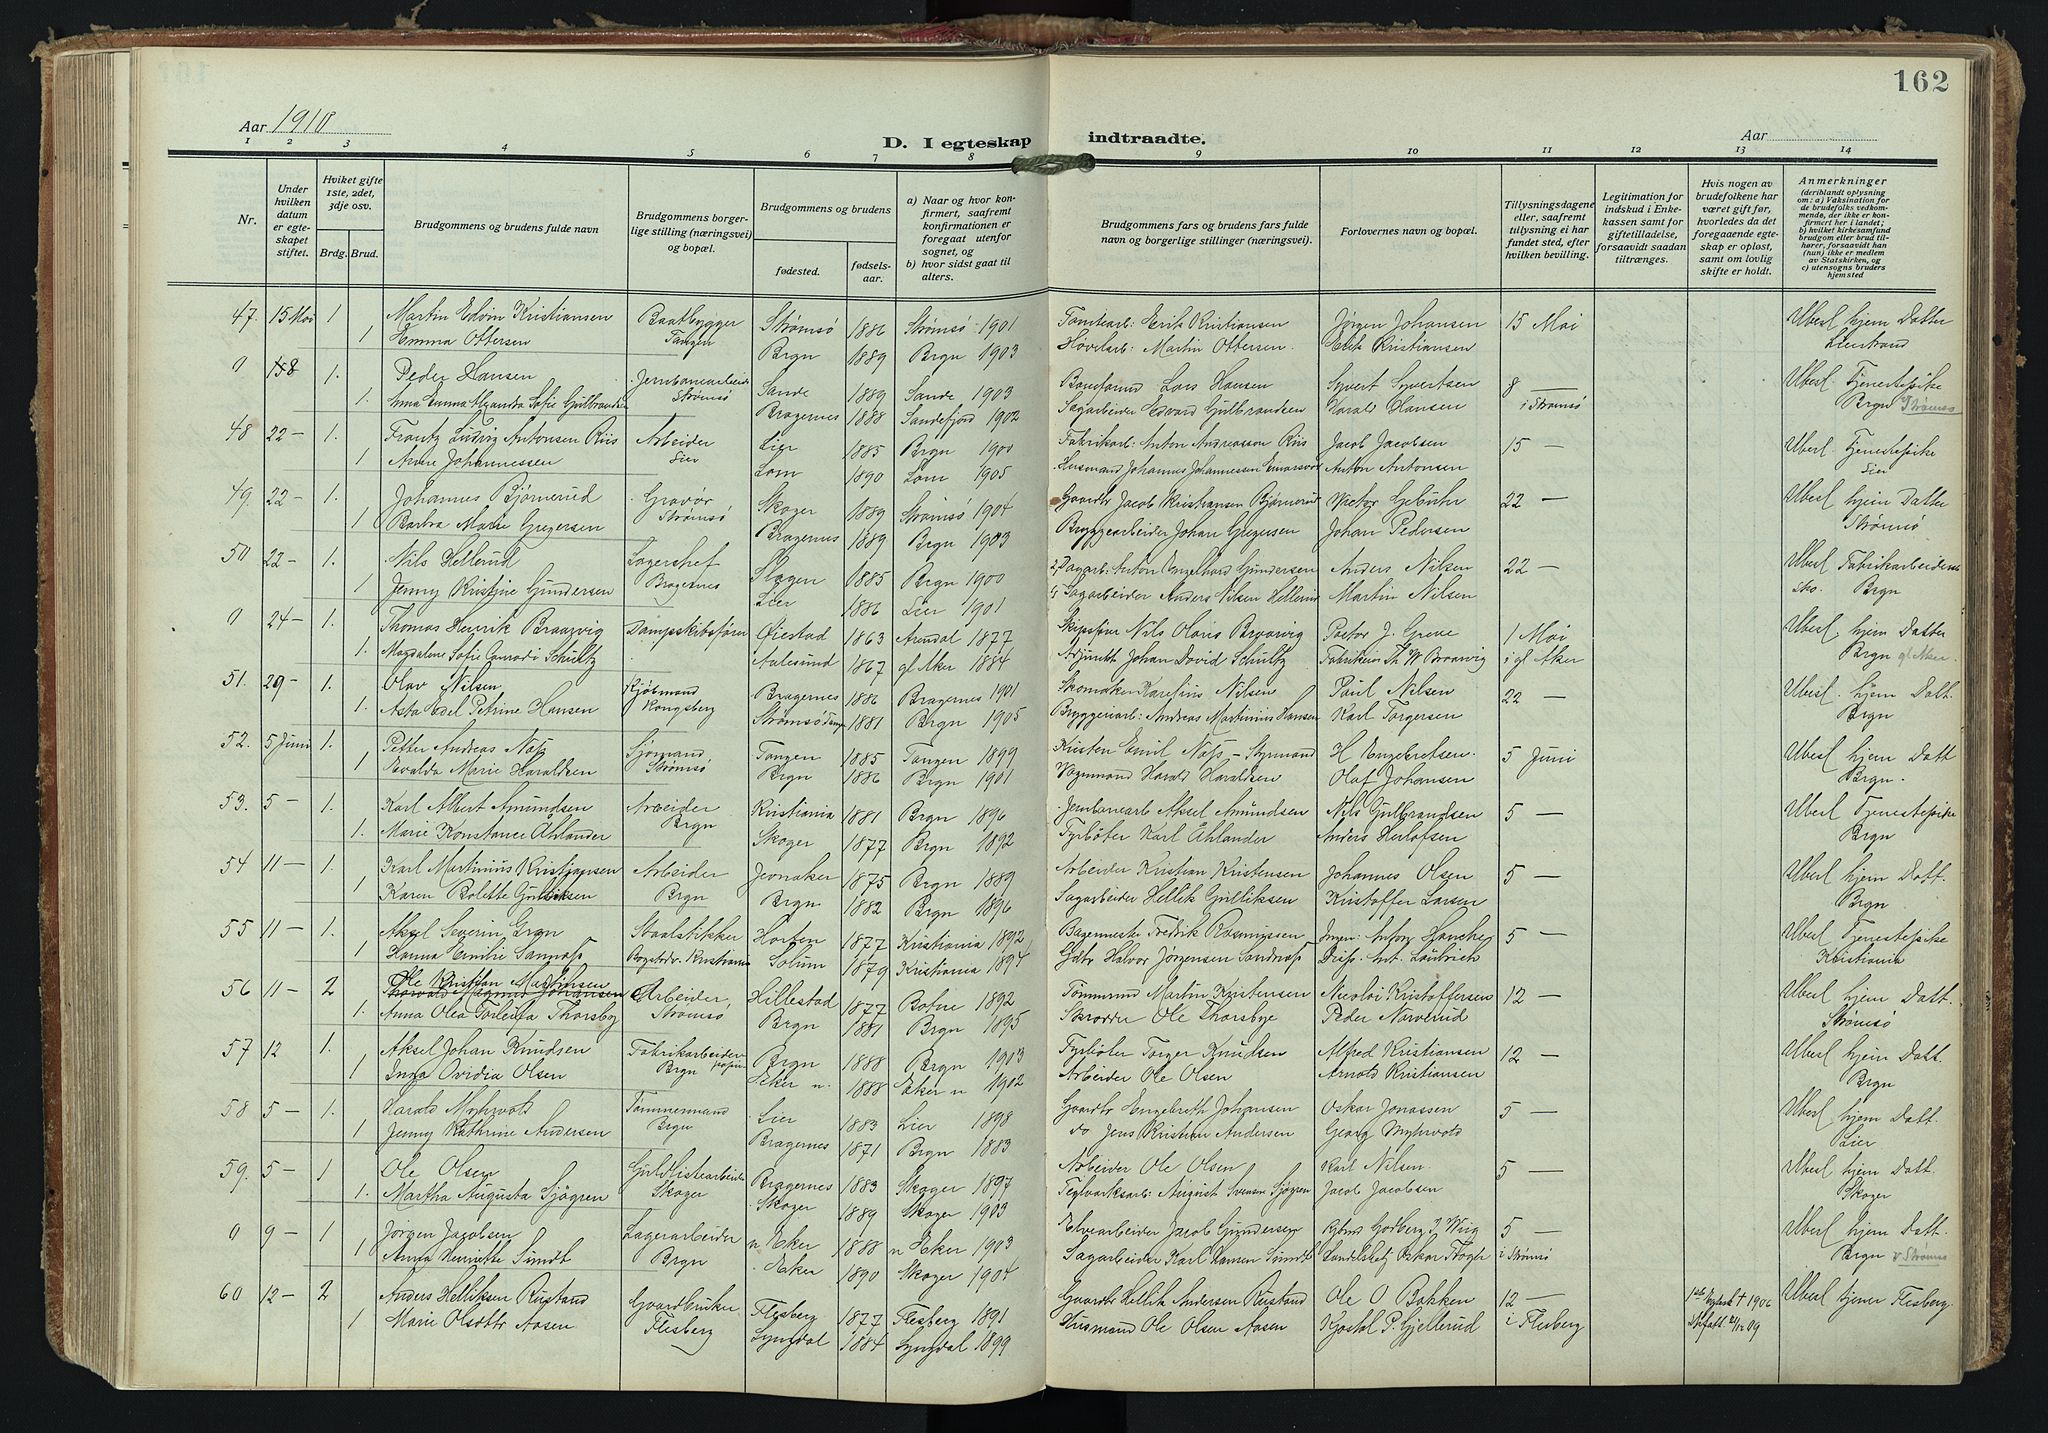 162
Aar 1910
D. I egteskap indtraadte.
Aar
1 2 3 4 5 6 7 8 9 10 11 12 13 14
Nr.
Under hvilken datum er egte-skapet stiftet.
Hviket gifte 1ste, 2det, 3dje osv.
Brdg. Brud.
Brudgommens og brudens fulde navn
Brudgommens borger-lige stilling (næringsvei) og bopæl.
Brudgommens og brudens
fødested.
fødsels-aar.
a) Naar og hvor kon-firmert, saafremt konfirmationen er foregaat utenfor sognet, og
b) hvor sidst gaat til alters.
Brudgommens fars og brudens fars fulde navn og borgerlige stillinger (næringsvei).
Forlovernes navn og bopæl.
Tillysningsdagene eller, saafremt tillysning ei har fundet sted, efter hvilken bevilling.
Legitimation for indskud i Enke-kassen samt for giftetilladelse, forsaavidt saadan tiltrænges.
Hvis nogen av brudefolkene har været gift før, hvorledes da det foregaaende egte-skap er opløst, samt om lovlig skifte er holdt.
Anmerkninger
(deriblandt oplysning om: a) Vaksination for de brudefolks vedkom-mende, der ikke er kon-firmert her i landet; b) hvilket kirkesamfund brudgom eller brud til-hører, forsaavidt han (hun) ikke er medlem av Statskirken, og c) utensogns bruders hjemsted
47. 15 Mai 1 Martin Edvin Kristiansen Baatbygger Strømsø 1886 Strømsø 1901 Tomtearb: Erik Kristiansen Jørgen Johansen 15 Mai Uberl hjem Datter
1 Emma Ottersen Tangen Brgn 1889 Brgn 1903 Høvelarb: Martin Ottersen. Erik Kristiansen Lierstrand
0 8 1. Peder Hansen Jernbanearbeider Sande 1889 Sande 1903 Lars Hansen Syvert Syvertsen 8 — Uberl. Tjenestepike
1. Anna Emma Alexandra Sofie Gulbrandsen Strømsø Bragernes 1888 Sandefjord 1902 Sagarbeider Edvard Gulbrandsen Harald Hansen i Strømsø Brgn Strømsø
48 22 — 1. Frantz Ludvig Antonsen Riis Arbeider Lier 1885 Brgn 1900 Fabrikarb: Anton Andreassen Riis Jacob Jacobsen 15 — Uberl. Tjenestepike
1 Anne Johannessen Lier Lom 1890 Lom 1905 Husmand Johannes Johannessen Anton Antonsen Lier
49. 22 — 1. Johannes Bjørnerud Gravør Skoger 1889 Strømsø 1904 Gaardbr Jacob Kristiansen Bjørnerud Victor 22 — Uberl hjem Datter
1 Barbra Marie Gregersen Strømsø Bragernes 1889 Brgn 1903 Bryggearbeider Johan Gregersen Johan Pedersen Strømsø
50 22 — 1. Nils Hellerud Lagerchef Slagen 1885 Brgn 1900 Dagarb: Anton Engelhard Gundersen Anders Nilsen 22 — Uberl Fabrikarbeiderske
1 Jenny Kristine Gundersen Bragernes Lier 1886 Lier 1901 Sagarbeider Anders Nilsen Hellerud Martin Nilsen Sko. Brgn
0 24 — 1. Thomas Henrik Braarvig Dampskibsfører Øiestad 1863 Arendal 1877 Skipsfører Nils Olaus Braarvig Pastor J. Greve 1 Mai Uberl. hjem Datter
1. Magdalene Sofie Conradi Schultz Aalesund 1867 gl Aker 1884 Adjunkt Johan David Schultz Fabrikeier Th W Braarvig i gl Aker Brgn gl Aker.
51. 29 — 1. Olav Nilsen Kjøbmand Bragernes 1886 Bragernes 1901 Skomaker Karelius Nilsen Paul Nilsen 22 — Uberl. hjem Datt.
1. Asta Edel Petrine Hansen Kongsberg Strømsø 1881 Brgn 1905 Bryggeriarb: Andreas Martinius Hansen Karl Torgersen Brgn
52. 5 Juni 1. Petter Andreas Næss Sjømand Tangen 1885 Tangen 1899 Kristen Emil Næss — Styrmand H Engebretsen. 5 Juni Uberl hjem Datt
1 Evalda Marie Haraldsen Strømsø Brgn 1886 Brgn 1901 Vognmand Harald Haraldsen Olaf Johansen Brgn.
53. 5 — 1. Karl Albert Amundsen Arbeider Kristiania 1881 Brgn 1896 Jernbanearb Aksel Amundsen Nils Gulbrandsen 5 — Uberl Tjenestepike
1. Marie Konstance Åhlander Brgn Skoger 1877 Brgn 1892 Fyrbøter Karl Åhlander Anders Herlofsen Brgn
54 11 — 1. Karl Martinius Kristiansen Arbeider Jevnaker 1875 Brgn 1889 Arbeider Kristian Kristensen Johannes Olsen 5 — Uberl hjem Datt.
1 Karen Bolette Gulliksen Brgn Brgn 1882 Brgn 1896 Sagarbeider Hellik Gulliksen Kristoffer Larsen Brgn
55 11 — 1. Aksel Severin Ergn Staalstikker Horten 1877 Kristiania 1892 Bagermester Fredrik Rasmussen 5 — Uberl Tjenestepike
1 Hanna Emilie Sannæss Kristiania Solum 1879 Kristiania 1894 Gdbr Halvor Jørgensen Kristiania
56 11 — 2 Ole Kristian Martinsen Arbeider, Hillestad 1877 Botne 1892 Tømmermd Martin Kristensen Nicolai Kristoffersen 12 — Uberl hjem Datt.
1. Anna Olea Thorsby Strømsø Brgn 1881 Brgn 1895 Skrædder Ole Thorsbye Peder Narverud Strømsø
57 12 1. Aksel Johan Knudsen Fabrikarbeider Brgn 1888 Brgn 1903 Fyrbøter Torger Knudsen Alfred Kristiansen 12 — Uberl hjem Datt.
1 Inga Ovidia Olsen Brgn Eker n. 1888 Eker n 1902 Arbeider Ole Olsen Arnold Kristiansen Brgn
58 5 — 1. Harald Myhrvold Tømmermand Lier 1883 Lier 1898 Gaardbr Engebreth Johansen Oskar Jonassen 5 — Uberl hjem Datt.
1 Jenny Kathrine Andersen Brgn Bragernes 1871 Brgn 1883 do Jens Kristian Andersen Georg Myhrvold Lier
59. 5 — 1 Ole Olsen Guldlistearbeider Bragernes 1883 Skoger 1897 Arbeider Ole Olsen Karl Nilsen. 5 — Uberl hjem Datt.
1. Martha Augusta Sjøgren Skoger Skoger 1889 Skoger 1903 Teglverksarb: August Svensen Sjøgren Jacob Jacobsen Skoger
0 9 — 1 Jørgen Jacobsen Lagerarbeider n Eker 1888 n Eker 1903 Elvearbeider Jacob Gundersen 5 — Uberl hjem Datt
1 Anna Henriette Sundt Brgn Eker 1890 Skoger 1904 Sagarbeider Karl Hansen Sundt Oskar i Strømsø Brgn v Strømsø
60 12 — 2 Anders Helliksen Rustand Gaardbruker Flesberg 1877 Flesberg 1891 Gaardbr Hellik Andersen Rustand Ole O Bakken 12 — 1ste † 1906 Uberl tjener Flesberg.
1 Marie Olsdttr Aasen Flesberg Lyngdal 1884 Lyngdal 1899 Husmand Ole Olsen Aasen P. Gjellerud i Flesberg